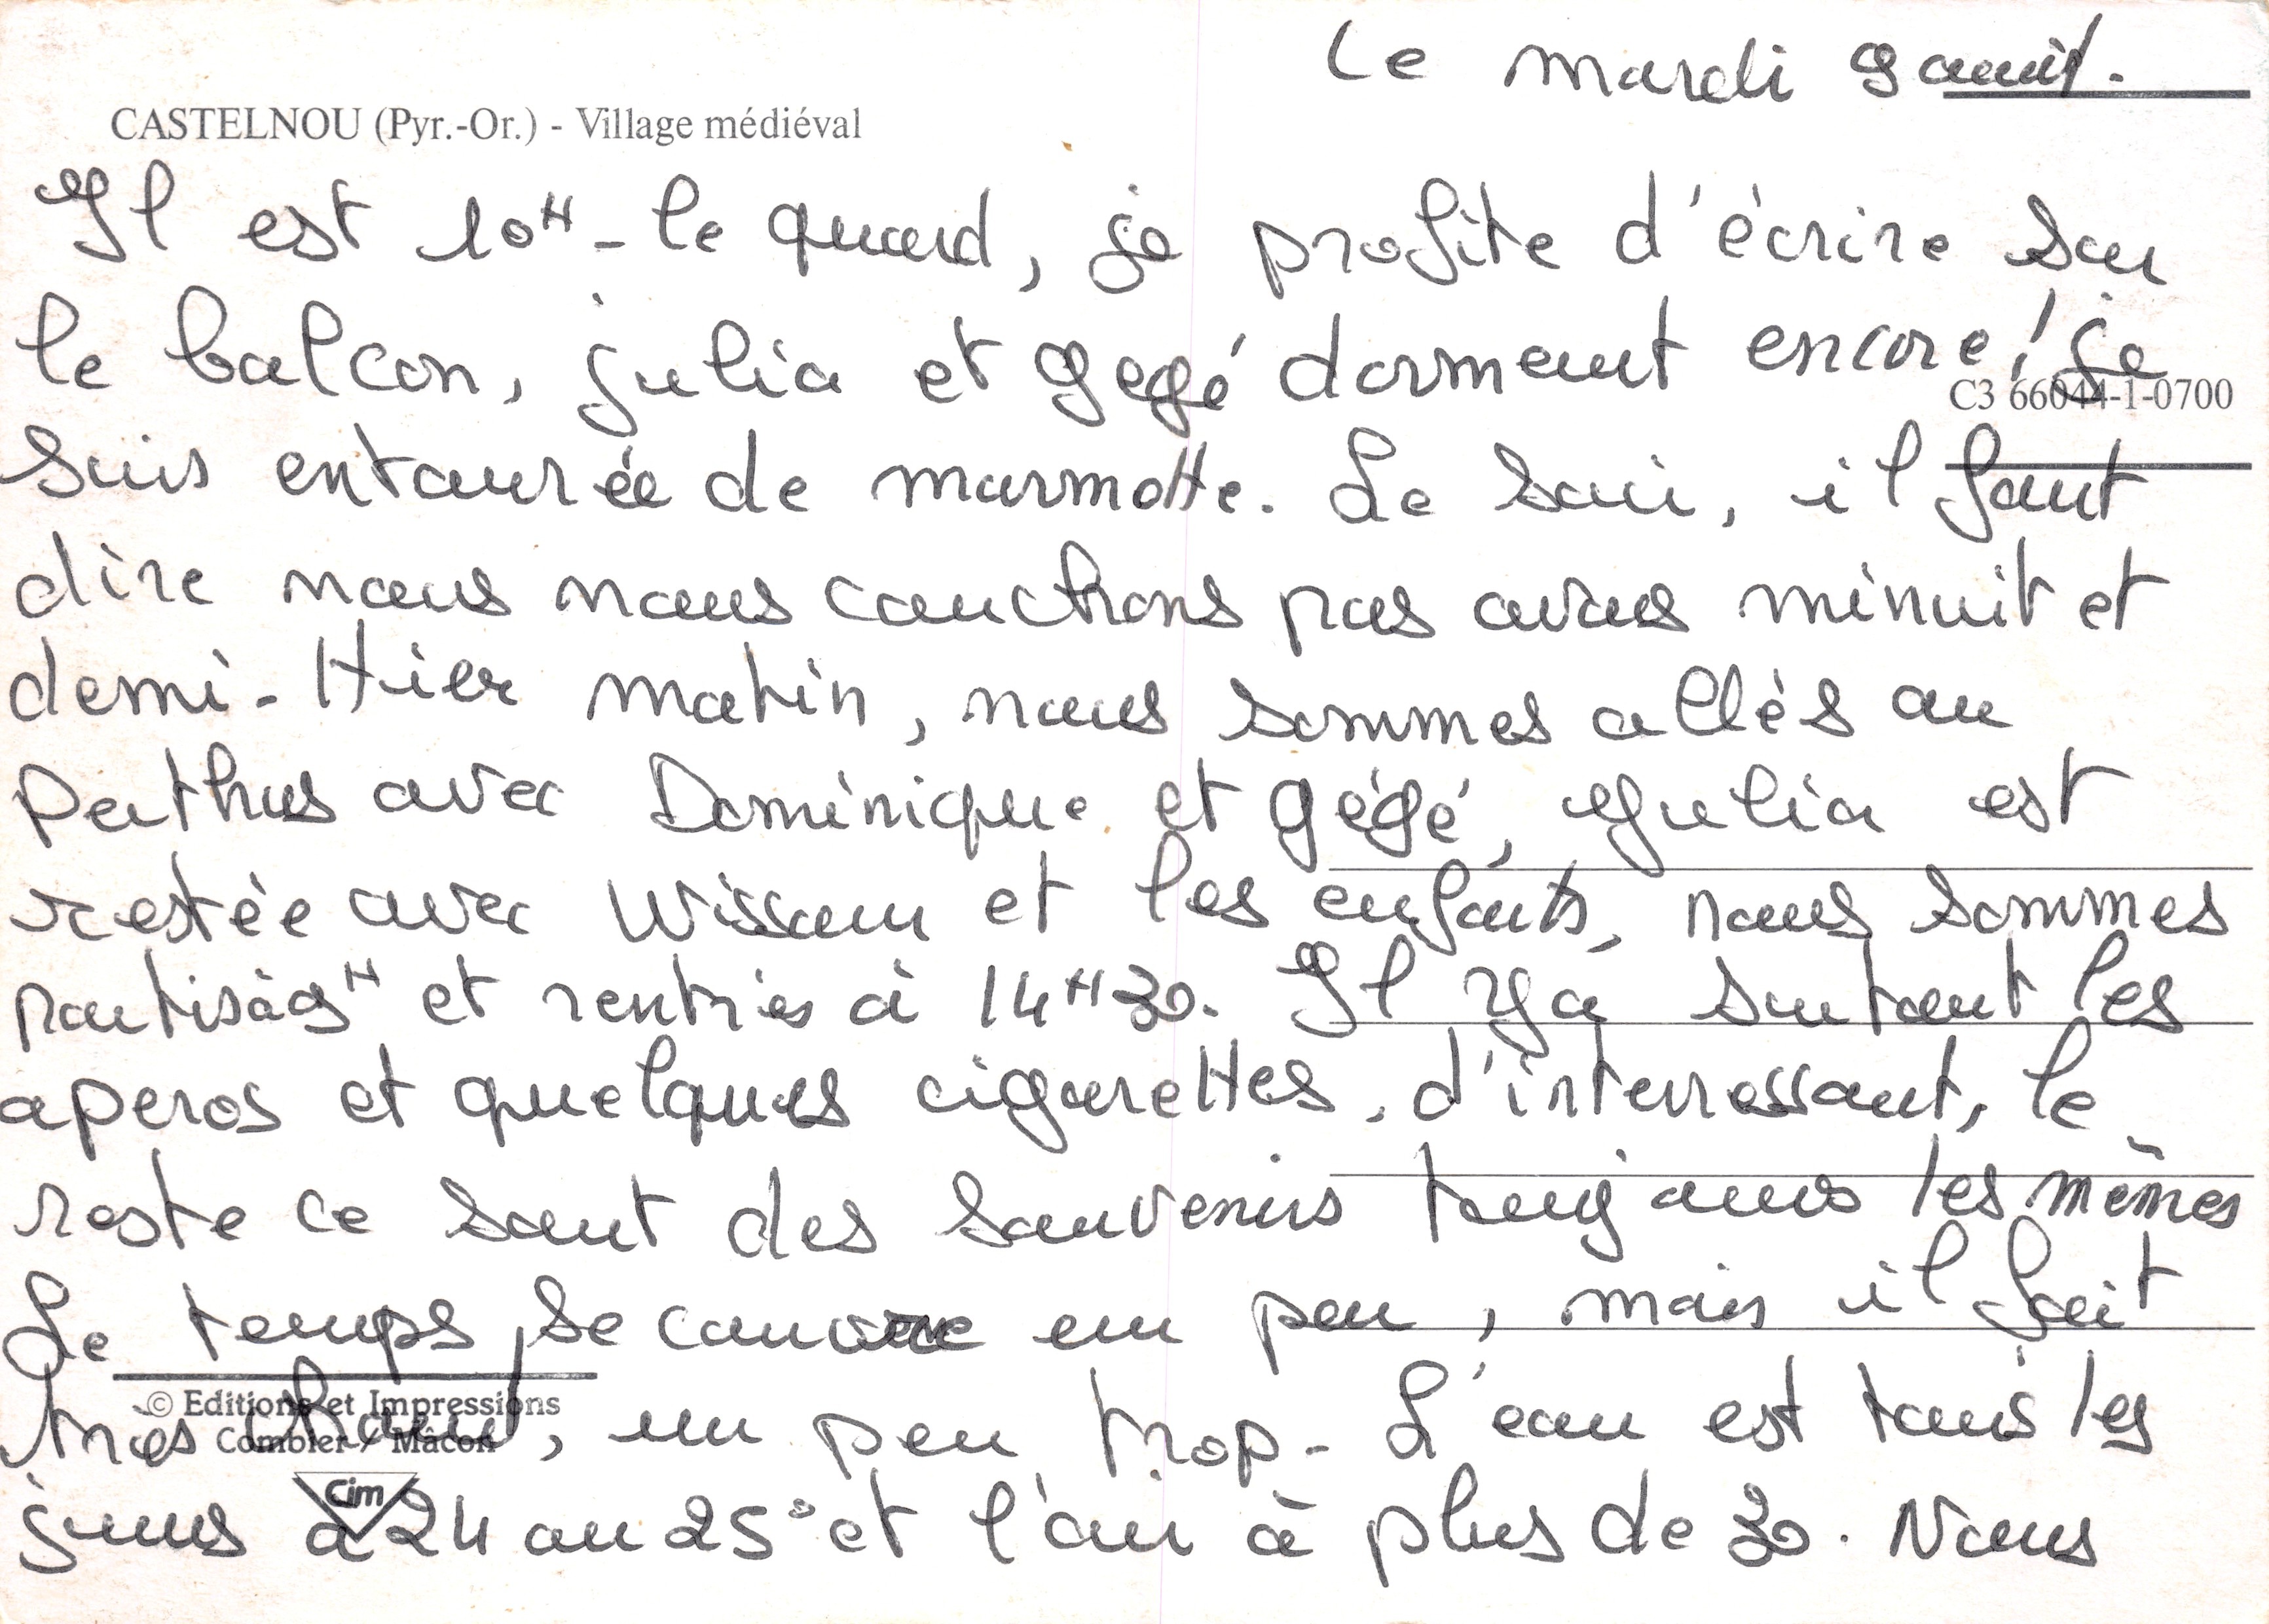 Le mardi 9 août.
CASTELNOU (Pyr.-Or.) - Village médiéval
Il est 10H - le quard, je profite d'écrire sur
le balcon, julia et gegé dorment encore, je
C3 66044-1-0700
suis entourée de marmotte. Le soir, il faut
dire nous nous couchons pas avans minuit et
demi - Hier matin, nous sommes allés au
Perthus avec Dominique et gégé, Julia est
restée avec Wissam et les enfants, nous sommes
partis à 9H et rentrés à 14H30. Il y a surtout les
aperos et quelques cigarettes, d'interressant, le
reste ce sont des souvenirs toujours les mêmes
Le temps se couvre un peu, mais il fait
très chaud, un peu trop - L'eau est tous les
© Editions et Impressions
Combier / Mâcon
cim
jours à 24 ou 25° et l'air à plus de 30. Nous